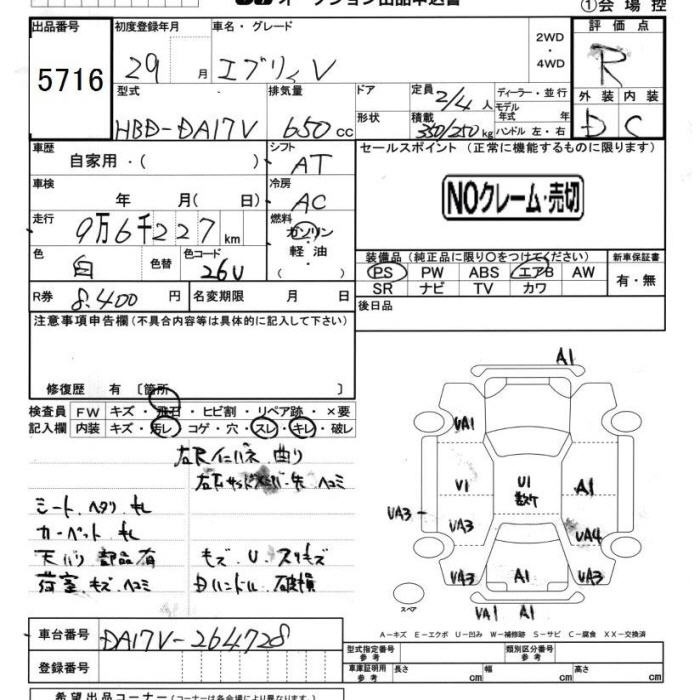 オークション出品申込書
①会場控
出品番号 初度登録年月 車名・グレード 2WD・4WD 評価点
5716 29 月 エブリィV R
外装 内装
D C
型式 排気量 ドア 定員 2/4人 ディーラー・並行
モデル年式 年
HBD-DA17V 650cc 形状 積載 350/250kg ハンドル 左・右
車歴 シフト セールスポイント (正常に機能するものに限ります)
自家用・( ) AT
車検 冷房
年 月( 日) AC
NOクレーム・売切
走行 燃料
9万6千227km ガソリン・軽油
色 色替 色コード
白 26U
装備品 (純正品に限り○をつけてください) 新車保証書
PS PW ABS エアB AW 有・無
SR ナビ TV カワ
R券 8,400円 名変期限 月 日
後日品
注意事項申告欄 (不具合内容等は具体的に記入して下さい)
修復歴 有 〔箇所 〕
検査員記入欄 FW キズ・飛石・ヒビ割・リペア跡・×要
内装 キズ・汚レ・コゲ・穴・スレ・キレ・破レ
曲り
ヘコミ
シート、ヘタリ、キレ
カーペット キレ
天バリ 部品有 モズ、U、スリキズ
荷室、キズ、ヘコミ Dハンドル、破損
A1
UA1
U1 U1 A1
UA3 UA3 UA4
UA3 A1 UA3
スペア
UA1 A1
A-キズ E-エクボ U-凹み W-補修跡 S-サビ C-腐食 XX-交換済
車台番号 DA17V-264728
型式指定番号 参考 類別区分番号 参考
登録番号
車庫証明用 参考 長さ cm 幅 cm 高さ cm
希望出品コーナー (コーナーは各会場により異なります)